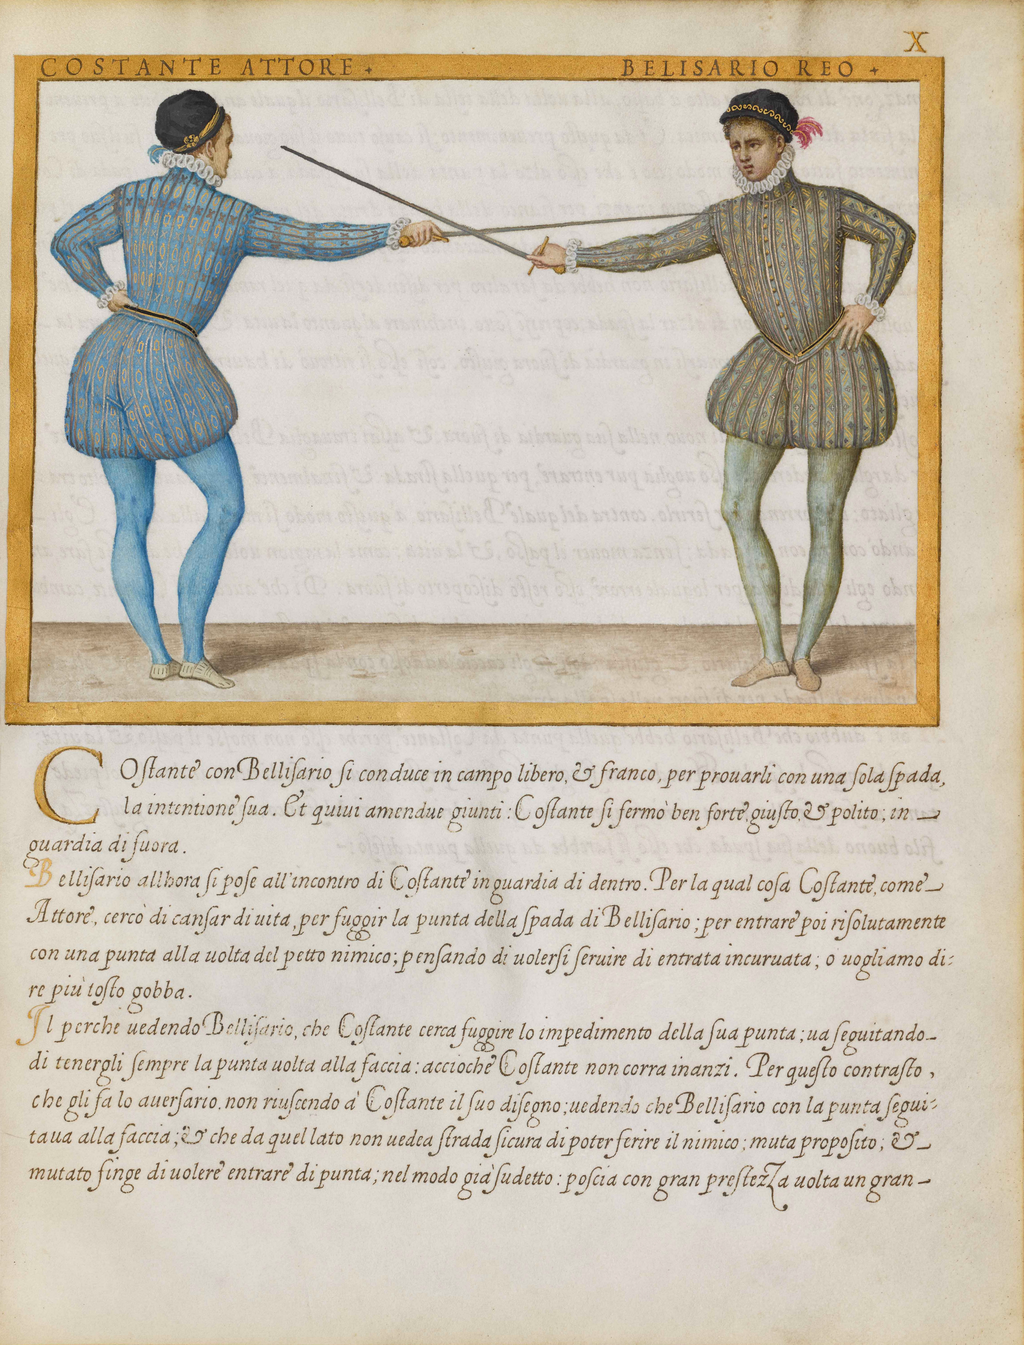 X
COSTANTE ATTORE +
BELISARIO REO +
COstante con Bellisario si conduce in campo libero, & franco, per prouarli con una sola spada,
la intentione sua. Et quiui amendue giunti: Costante si fermò ben forte, giusto, & polito; in
guardia di fuora.
Bellisario allhora si pose all'incontro di Costante in guardia di dentro. Per la qual cosa Costante, come
Attore, cercò di cansar di uita, per fuggir la punta della spada di Bellisario; per entrare poi risolutamente
con una punta alla uolta del petto nimico; pensando di uolersi seruire di entrata incuruata, o uogliamo di:
re più tosto gobba.
Il perche uedendo Bellisario, che Costante cerca fuggire lo impedimento della sua punta; ua seguitando
di tenergli sempre la punta uolta alla faccia: accioche Costante non corra inanzi. Per questo contrasto,
che gli fa lo auersario, non riuscendo à Costante il suo disegno; uedendo che Bellisario con la punta segui:
taua alla faccia; & che da quel lato non uedea strada sicura di poter ferire il nimico; muta proposito; &
mutato finge di uolere entrare di punta; nel modo già sudetto: poscia con gran prestezza uolta un gran